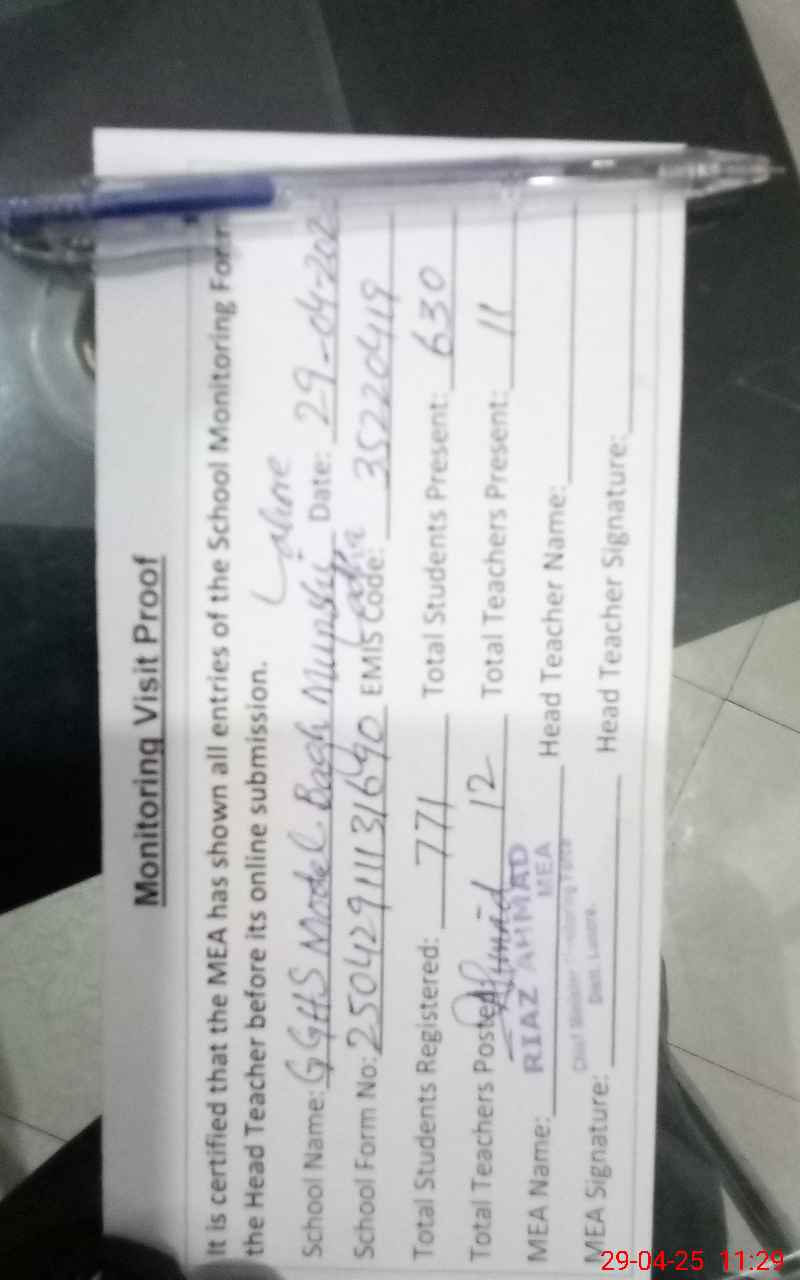 Monitoring Visit Proof
It is certified that the MEA has shown all entries of the School Monitoring Form
the Head Teacher before its online submission.
Lahore
School Name: GGHS Model Bagh Munshi Ladha Date: 29-04-202
School Form No: 250429111131690 EMIS Code: 35220419
Total Students Registered: 771 Total Students Present: 630
Total Teachers Posted: 12 Total Teachers Present: 11
RIAZ AHMMAD
MEA
MEA Name: Head Teacher Name:
Chief Minister Monitoring Force
Distt. Lahore.
MEA Signature: Head Teacher Signature:
29-04-25 11:29